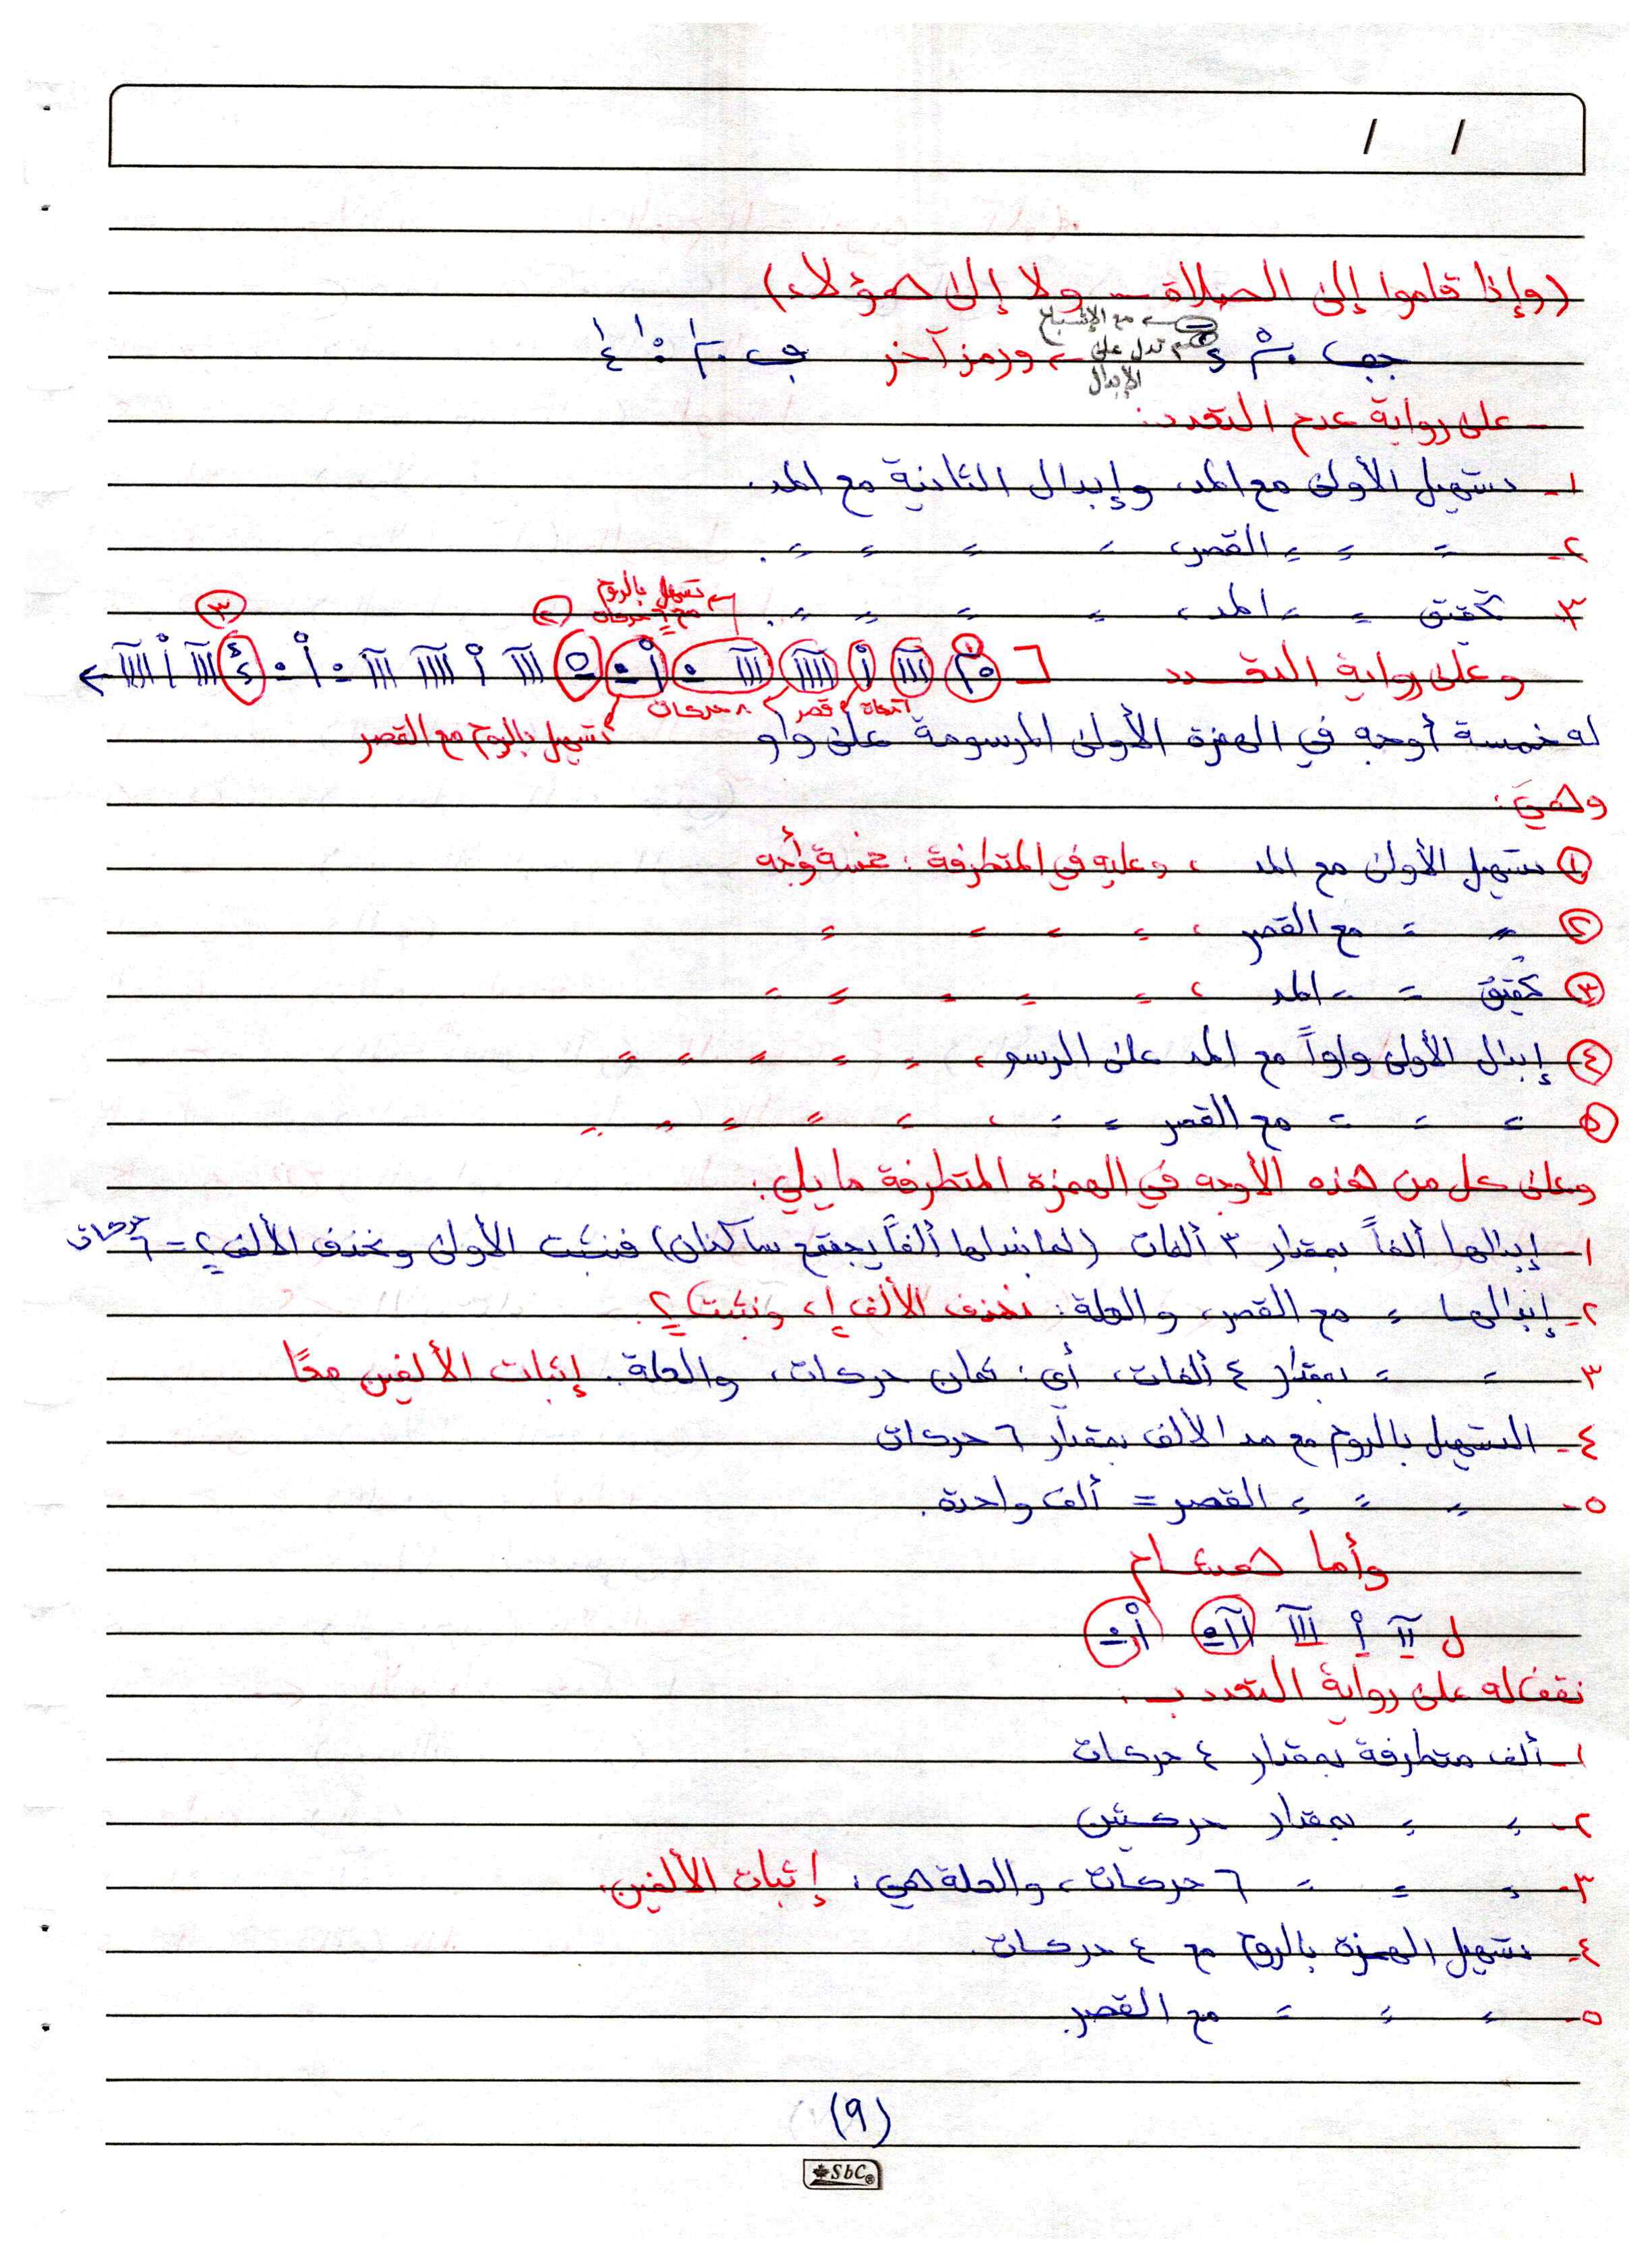 / /
(وإذا قاموا إلى الصلاة – ولا إلى هؤلاء)
مع الإشباع
ورمز آخر
تدل على
الإبدال
- على رواية عدم التعدد:
١- تسهيل الأولى مع المد، وإبدال الثانية مع المد.
٢- = = = القصر، = = = = =.
٣- تحقيق = = المد، = = = = =.
تسهيل بالروم
مع ٦ حركات
(٢) (٣)
وعلى رواية التعدد
٣ ألفات قصر ٨ حركات
تسهيل بالروم مع القصر
له خمسة أوجه في الهمزة الأولى المرسومة على واو
وهي:
(١) تسهيل الأولى مع المد ، وعليه في المتطرفة : خمسة أوجه
(٢) = = مع القصر ، = = = =
(٣) تحقيق = = المد ، = = = = =
(٤) إبدال الأولى واواً مع المد على الرسم ، = = = = =
(٥) = = = مع القصر = = ، = = = = =
وعلى كل من هذه الأوجه في الهمزة المتطرفة ما يلي:
١- إبدالها ألفاً بمقدار ٣ ألفات (لما نبدلها ألفاً يجتمع ساكنان) فنثبت الأولى ونحذف الألف ٢ = ٦ حركات
٢- إبدالها = مع القصر، والعلة: نحذف الألف ١، ونثبت ٢.
٣- = = بمقدار ٤ ألفات، أي: ثمان حركات، والعلة: إثبات الألفين معًا
٤- التسهيل بالروم مع مد الألف بمقدار ٦ حركات
٥- = = = القصر = ألف واحدة.
وأما هشام
نقف له على رواية التعدد بـ :
١- ألف متطرفة بمقدار ٤ حركات
٢- = = بمقدار حركتين
٣- = = = ٦ حركات، والعلة هي: إثبات الألفين.
٤- تسهيل الهمزة بالروم مع ٤ حركات.
٥- = = = مع القصر.
(٩)
SbC®